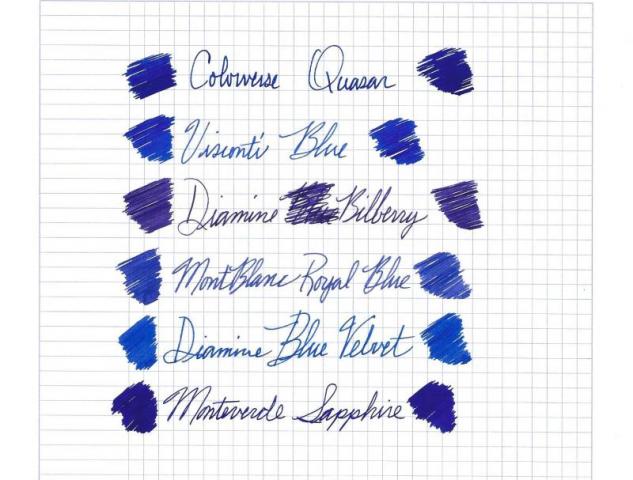 Colorverse Quasar
Visconti Blue
Diamine Bilberry
MontBlanc Royal Blue
Diamine Blue Velvet
Monteverde Sapphire